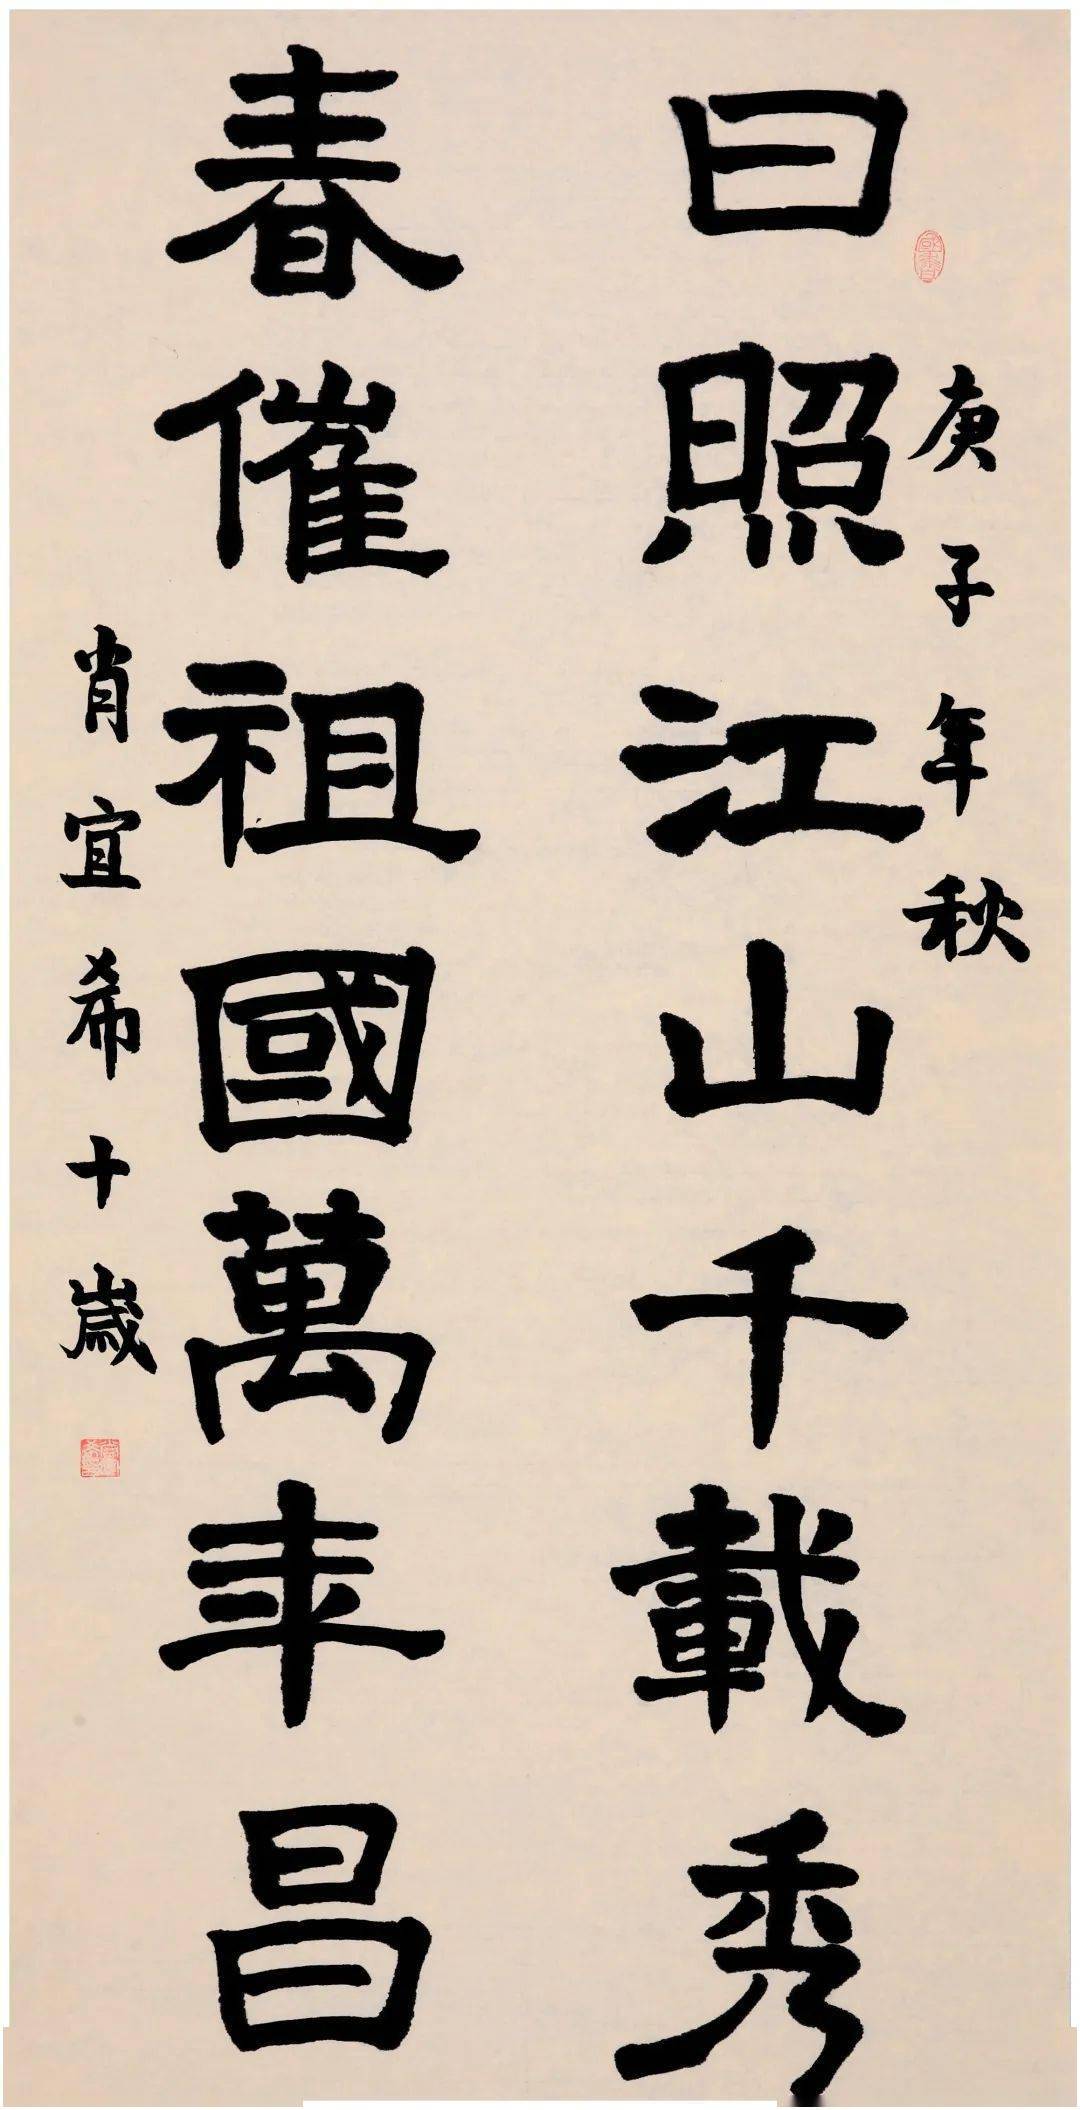 庚子年秋
日照江山千載秀
春催祖國萬年昌
肖宜希十歲